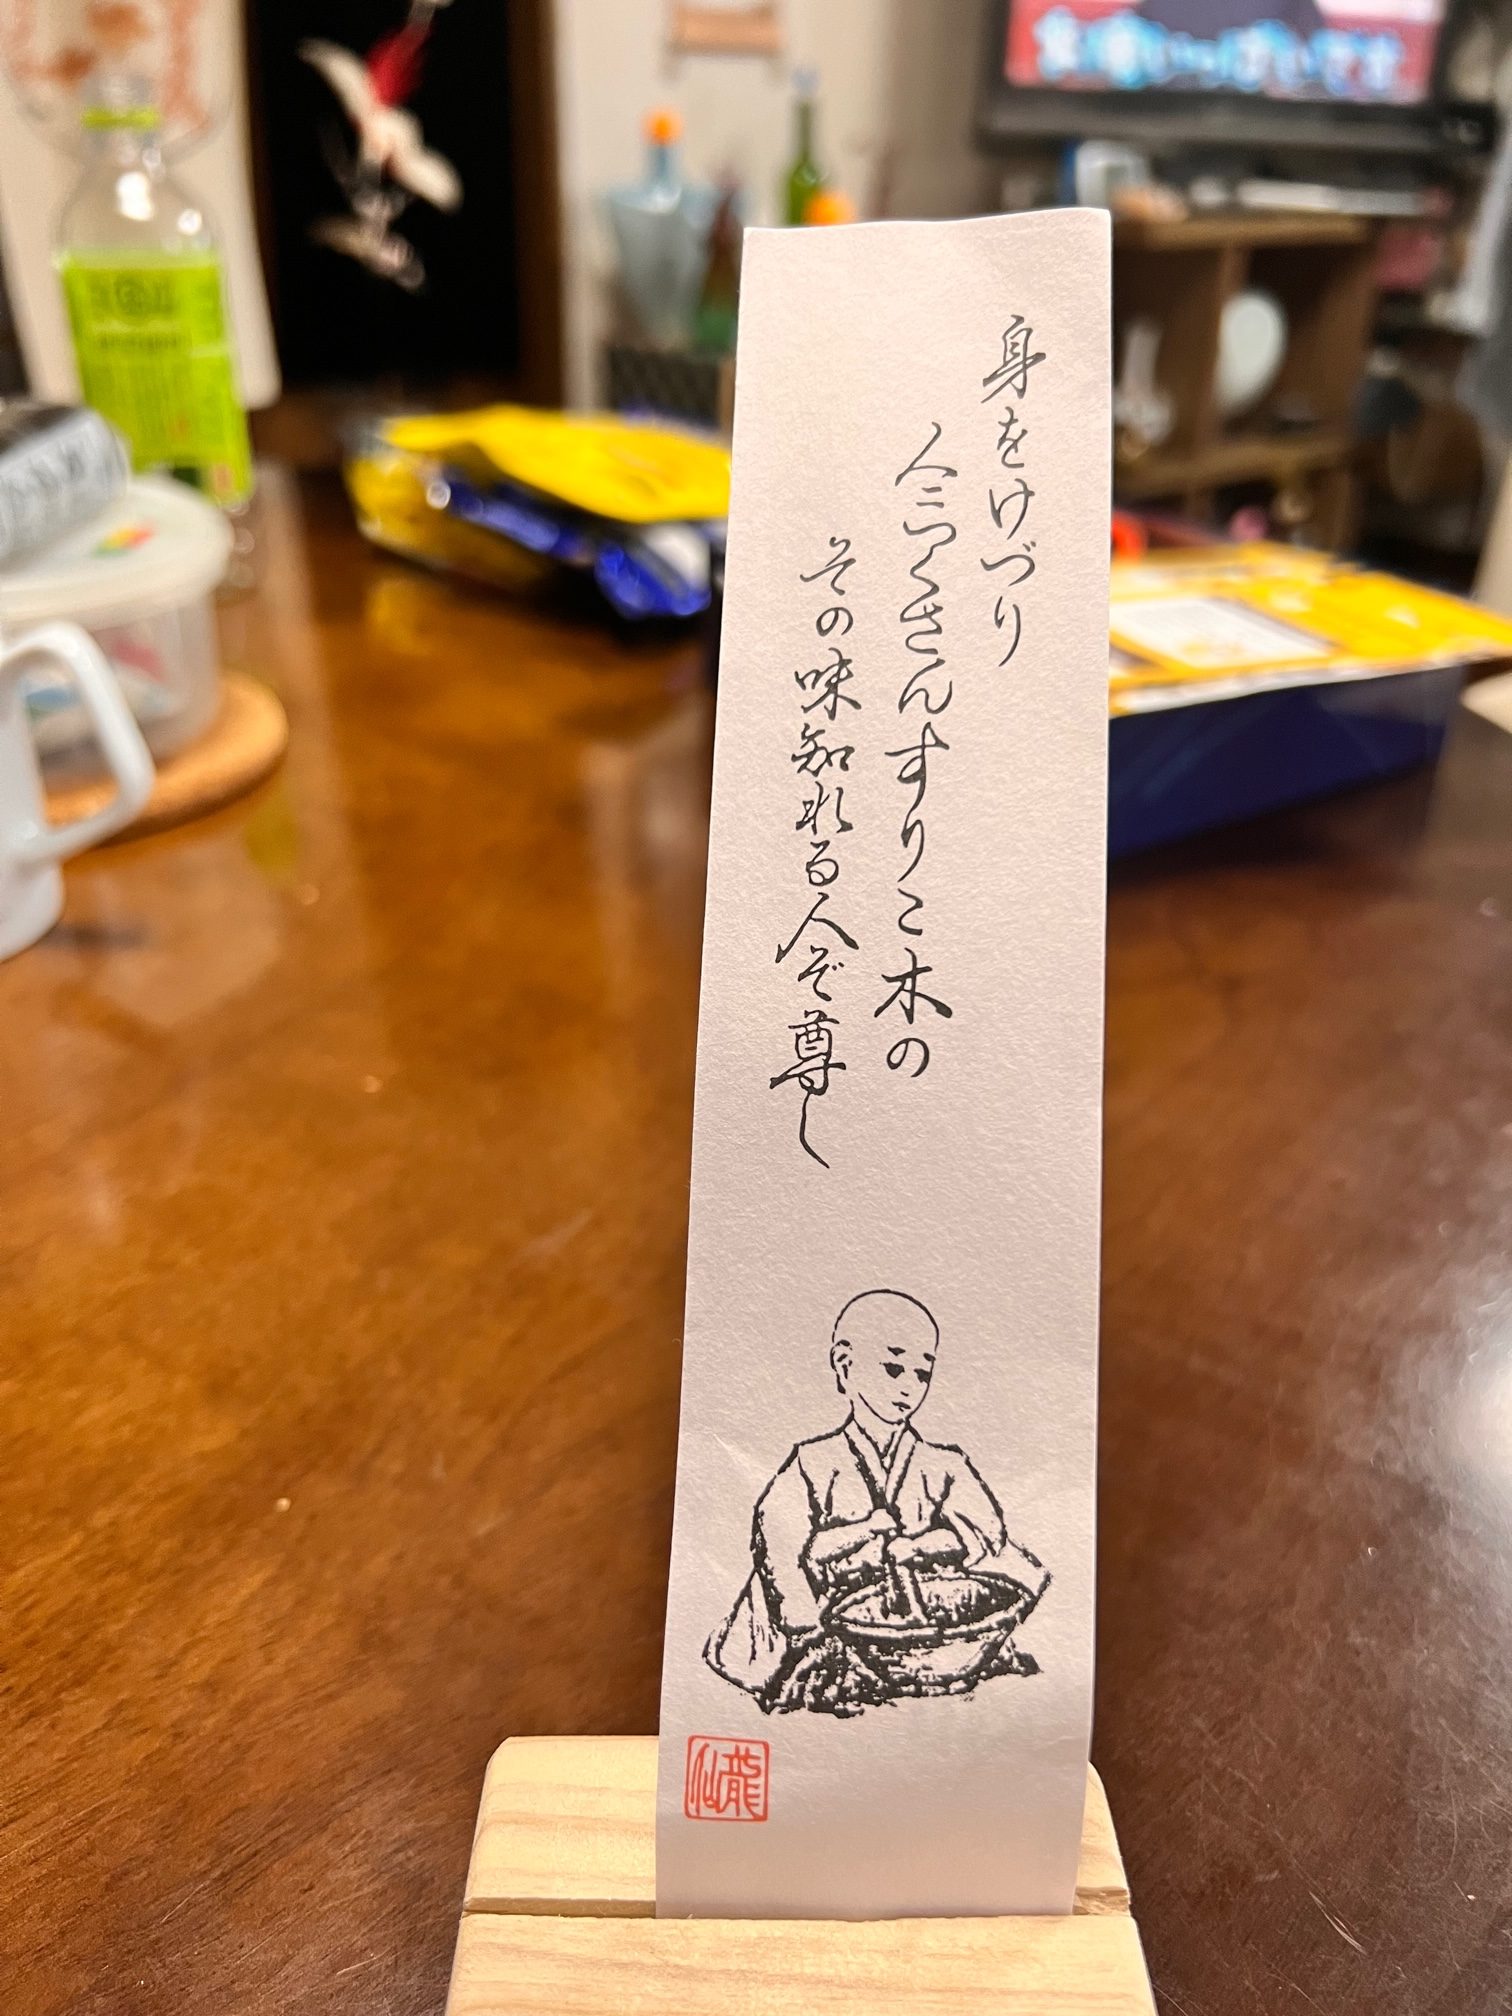 身をけづり
人につくさんすりこ木の
その味知れる人ぞ尊し
龍仙